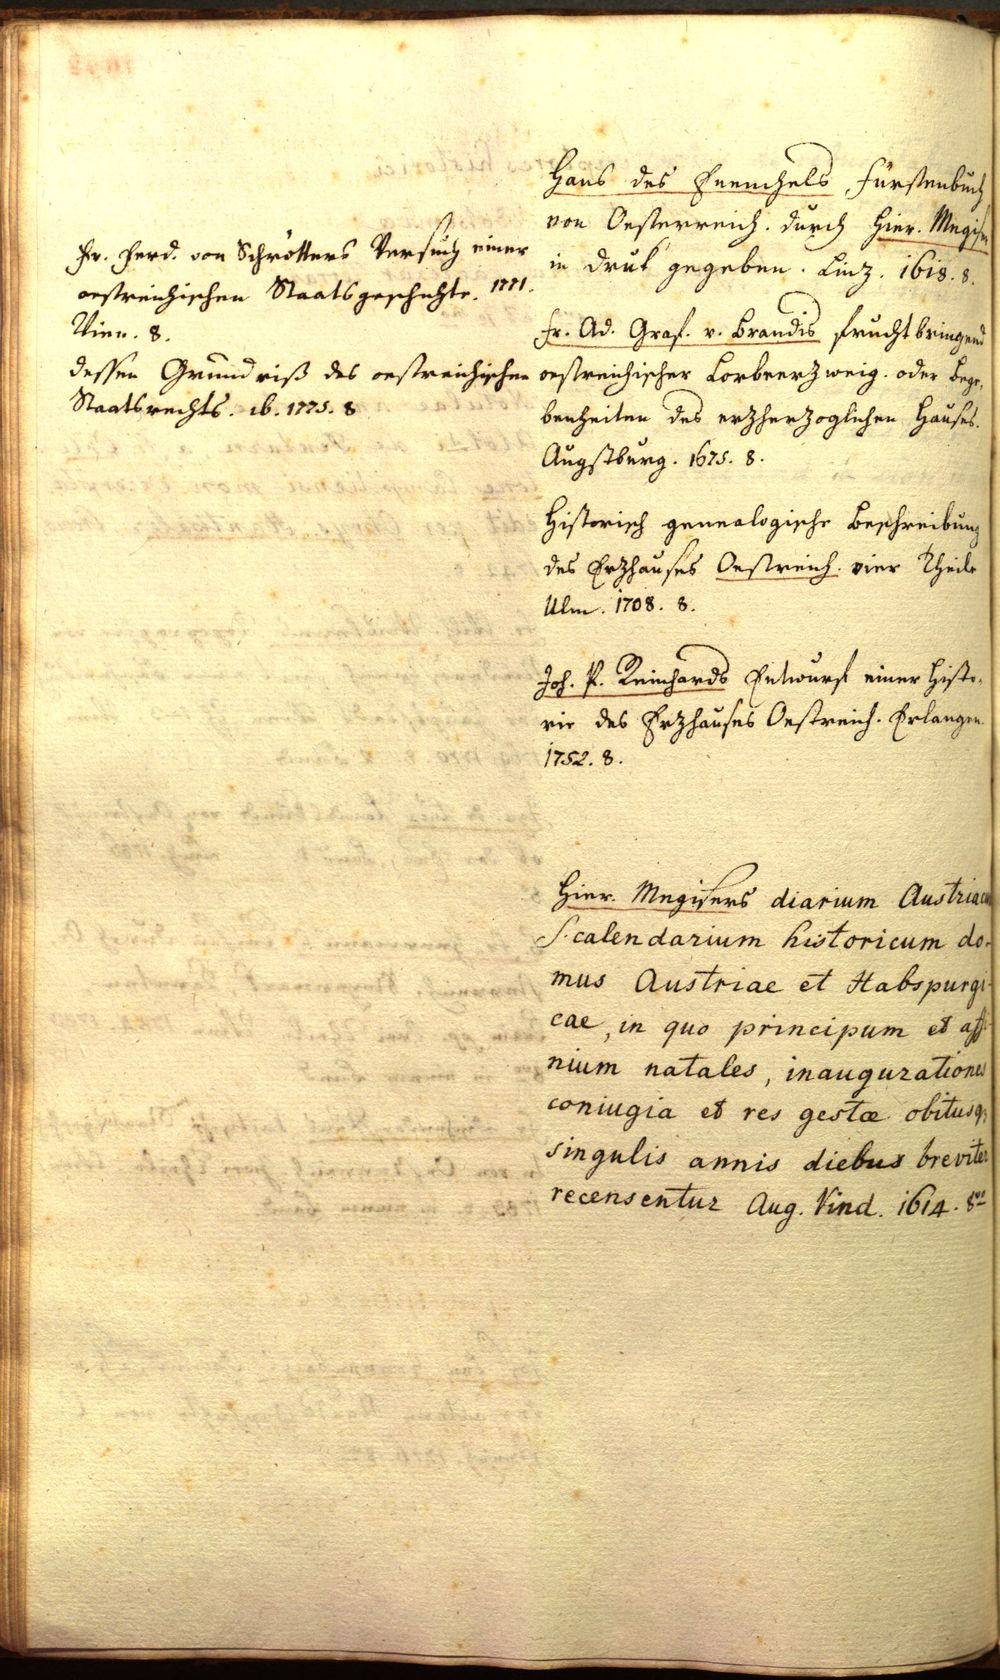 Fr. Ferd. von Schrötters Versuch einer
oestreichischen Staatsgeschichte. 1771.
Vien. 8.
dessen Grundriß des oestreichischen
Staatsrechts. ib. 1775. 8
Hans des Enenchels Fürstenbuch
von Oesterreich. durch Hier. Megiser
in druk gegeben. Linz. 1618. 8.
Fr. Ad. Graf. v. Brandis fruchtbringend
oestreichischer Lorbeerzweig. oder Bege,
benheiten des erzherzoglichen Hauses.
Augstburg. 1675. 8.
Historisch genealogische Beschreibung
des Erzhauses Oestreich. vier Theile
Ulm. 1708. 8.
Joh. P. Reinhards Entwurf einer Histo,
rie des Erzhauses Oestreich. Erlangen.
1752. 8.
Hier. Megisers diarium Austriacum
S. calendarium historicum do-
mus Austriae et Habspurgi-
cae, in quo principum et affi-
nium natales, inaugurationes
coniugia et res gestæ obitusq;
singulis annis diebus breviter
recensentur Aug. Vind. 1614. 8vo